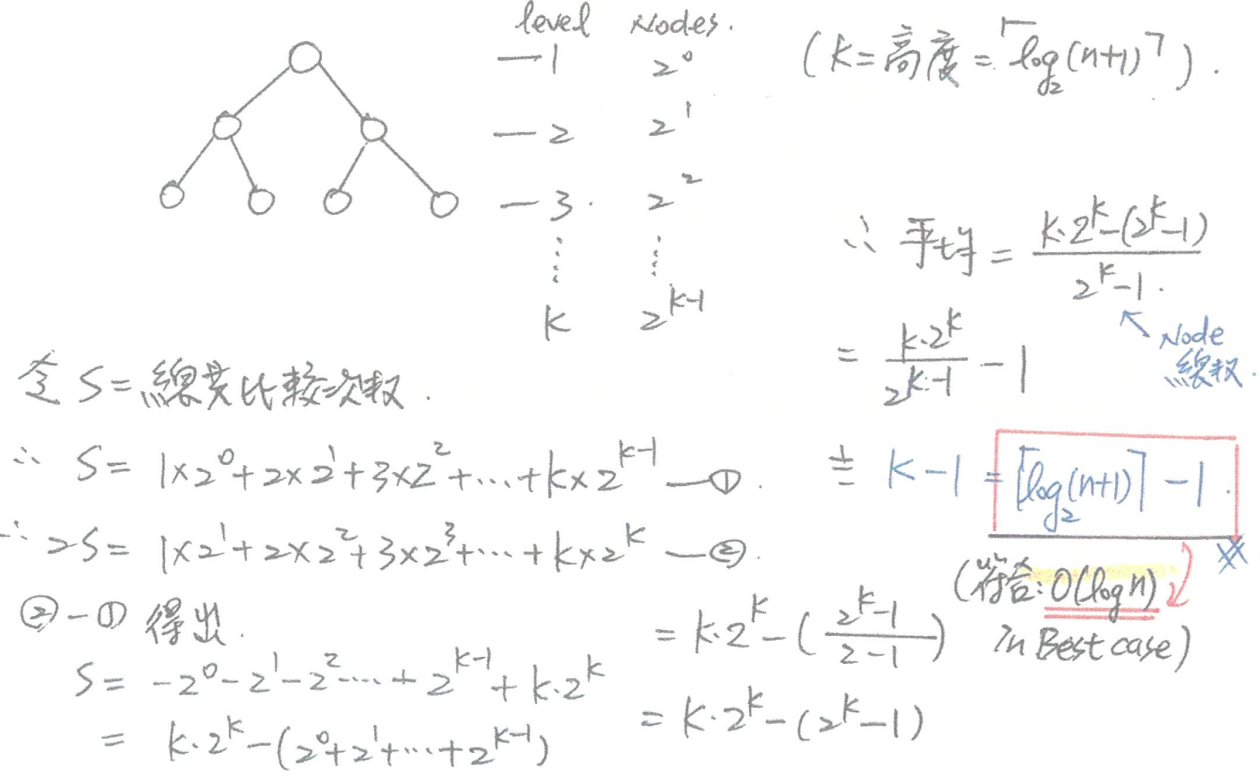 level Nodes.
—1 2^0
—2 2^1
—3. 2^2
⋮ ⋮
k 2^{k-1}
令 S = 總共比較次數.
∴ S = 1×2^0+2×2^1+3×2^2+...+k×2^{k-1} —①.
∴ 2S = 1×2^1+2×2^2+3×2^3+...+k×2^k —②.
②-① 得出.
S = -2^0-2^1-2^2....+2^{k-1}+k·2^k
= k·2^k-(2^0+2^1+...+2^{k-1})
= k·2^k-(\frac{2^k-1}{2-1})
= k·2^k-(2^k-1)
(k=高度=⌈log_2(n+1)⌉).
∴ 平均 = \frac{k·2^k-(2^k-1)}{2^k-1.}
Node
總數.
= \frac{k·2^k}{2^k-1} - 1
≒ k-1 = ⌈log_2(n+1)⌉-1.
(符合: O(log n)
in Best case)